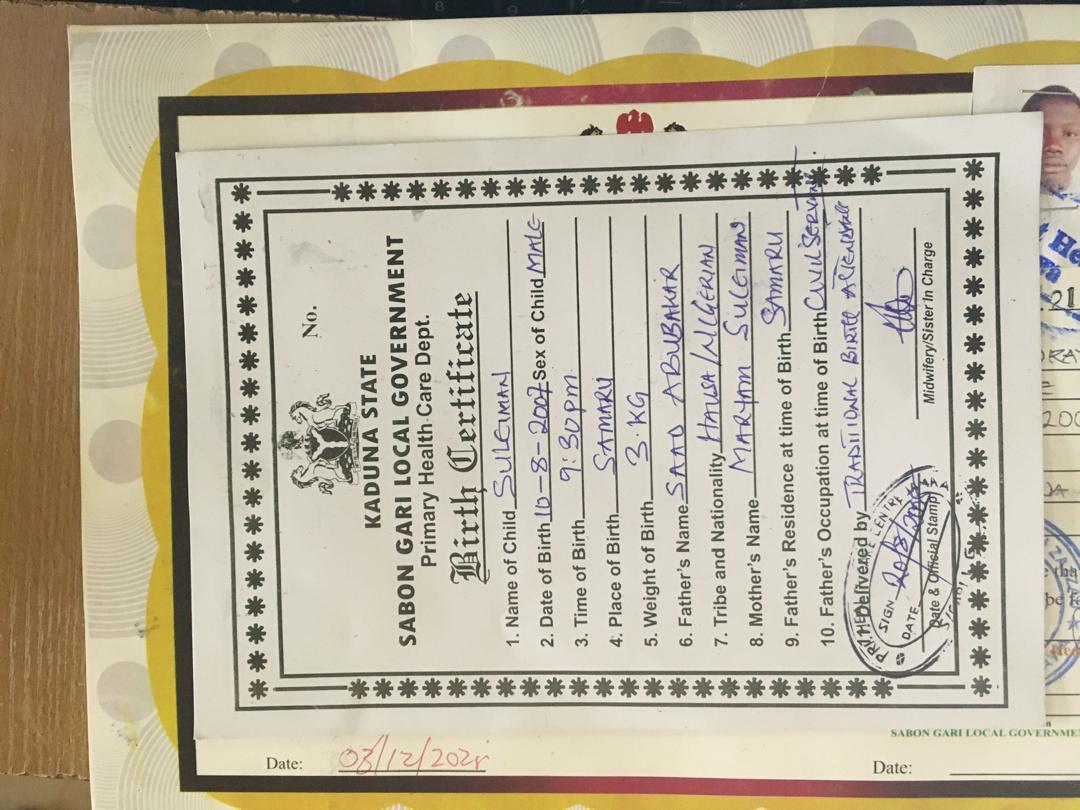 No.
KADUNA STATE
SABON GARI LOCAL GOVERNMENT
Primary Health-Care Dept.
Birth Certificate
1. Name of Child SULEIMAN
2. Date of Birth 10-8-2007 Sex of Child MALE
3. Time of Birth 9:30pm
4. Place of Birth SAMARU
5. Weight of Birth 3.KG
6. Father's Name SAAD ABUBAKAR
7. Tribe and Nationality HAUSA/NIGERIAN
8. Mother's Name MARYAM SULEIMAN
9. Father's Residence at time of Birth SAMARU
10. Father's Occupation at time of Birth CIVIL SERVANT
Delivered by TRADITIONAL BIRTH ATTENDANT
CENTRE
SIGN
DATE
Date & Official Stamp
Midwifery/Sister In Charge
Date: 03/12/2024
SABON GARI LOCAL GOVERNME
Date: